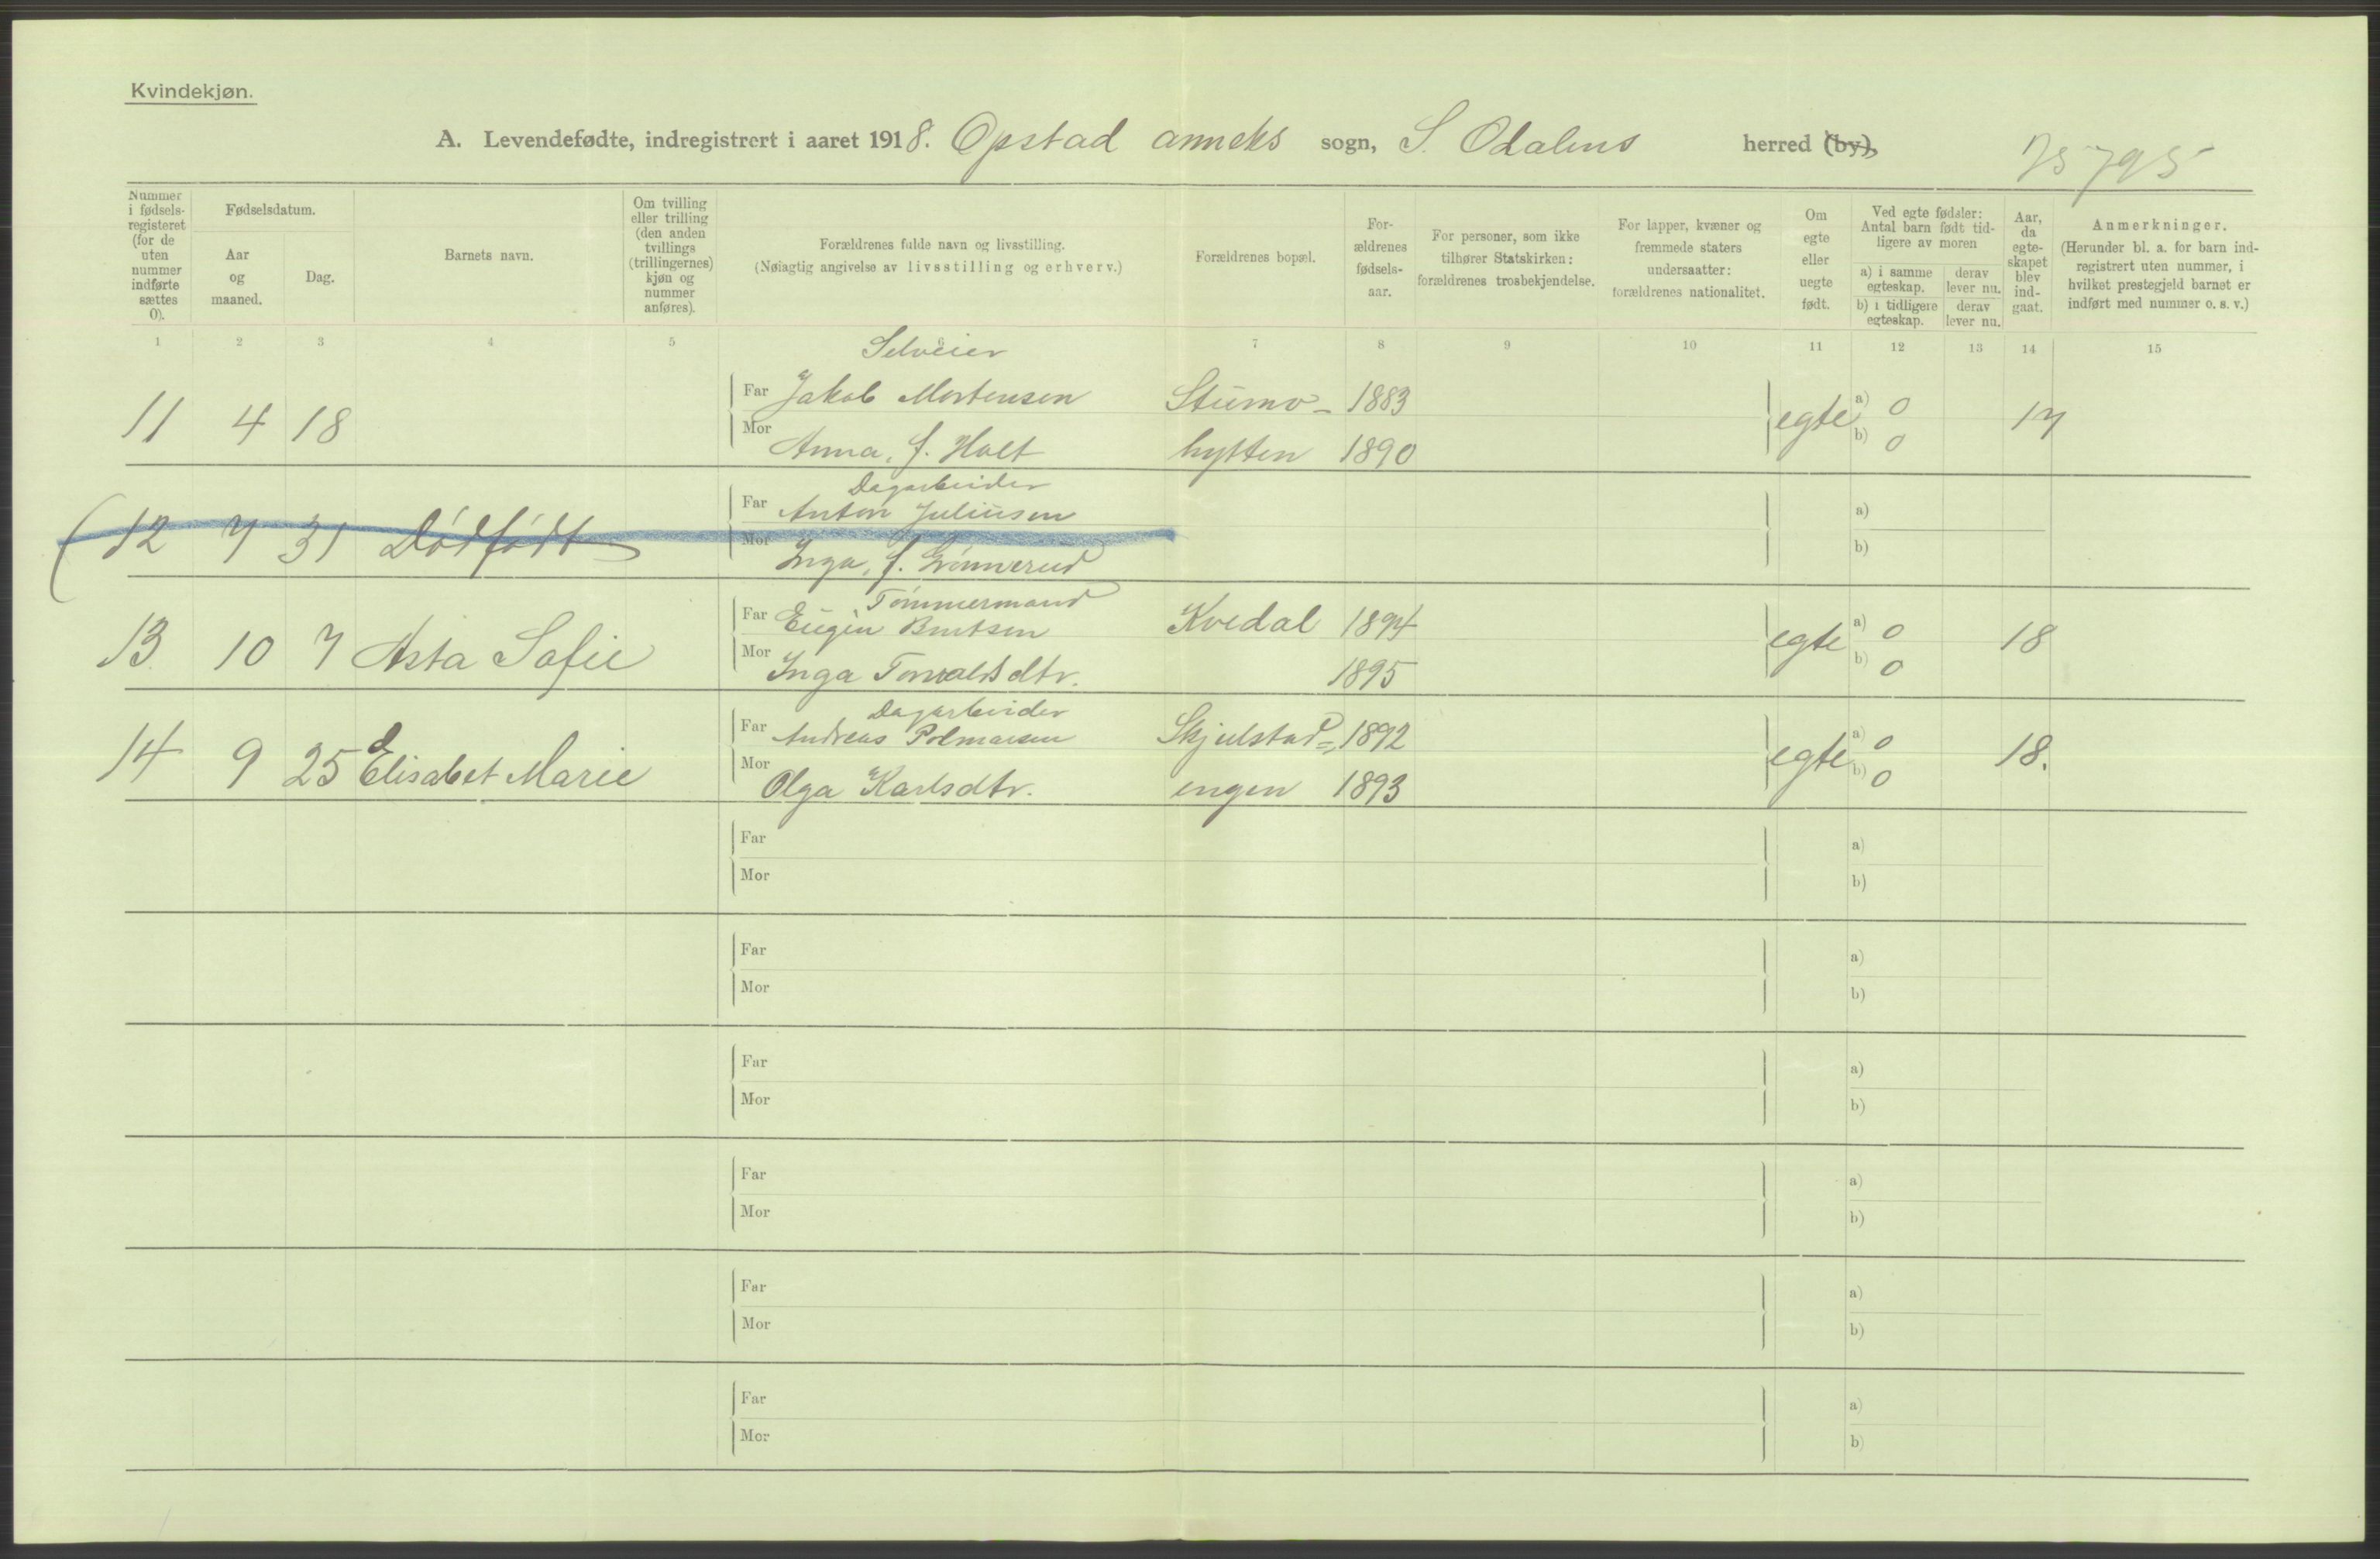 Kvindekjøn.
A. Levendefødte, indregistrert i aaret 1918. Opstad anneks sogn, S. Odalens herred (by),
Nummer i fødsels-registeret (for de uten nummer indførte sættes 0).
Fødselsdatum.
Aar og maaned.
Dag.
Barnets navn.
Om tvilling eller trilling (den anden tvillings (trillingernes) kjøn og nummer anføres).
Forældrenes fulde navn og livsstilling.
(Nøiagtig angivelse av livsstilling og erhverv.)
Forældrenes bopæl.
For-ældrenes fødsels-aar.
For personer, som ikke tilhører Statskirken: forældrenes trosbekjendelse.
For lapper, kvæner og fremmede staters undersaatter: forældrenes nationalitet.
Om egte eller uegte født.
Ved egte fødsler: Antal barn født tid-ligere av moren
a) i samme egteskap.
derav lever nu.
b) i tidligere egteskap.
derav lever nu.
Aar, da egte-skapet blev ind-gaat.
Anmerkninger.
(Herunder bl. a. for barn ind-registrert uten nummer, i hvilket prestegjeld barnet er indført med nummer o. s. v.)
1 2 3 4 5 6 7 8 9 10 11 12 13 14 15
Selveier
11 4 18 Far Jakob Mortensen 1883 egte a) 0 17
Mor Anna, f. Holt hytten 1890 b) 0
Dagarbeider
12 7 31 Dødfødt Far Anton Juliusen a)
Mor Inga, f. b)
Tømmermand
13. 10 7 Asta Sofie Far Eugen Berntsen Kvedal 1894 egte a) 0 18
Mor Inga Torvaldsdtr. 1895 b) 0
Dagarbeider
14 9 25 Elisabet Marie Far Andreas Skjulstad= 1892 egte a) 0 18.
Mor Olga Karlsdtr. engen 1893 b) 0
Far a)
Mor b)
Far a)
Mor b)
Far a)
Mor b)
Far a)
Mor b)
Far a)
Mor b)
Far a)
Mor b)